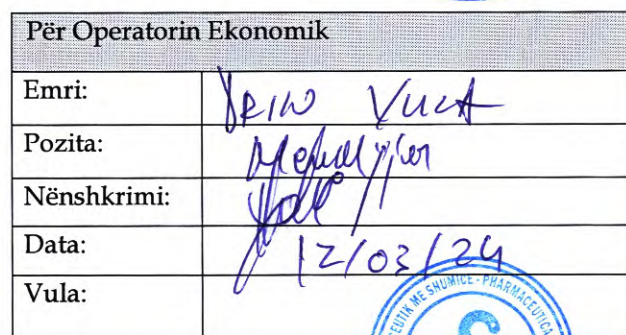 Për Operatorin Ekonomik
Emri: DRIN VUCA
Pozita:
Nënshkrimi:
Data: 12/03/24
Vula:
ME SHUMICË - PHARMACEUTICA